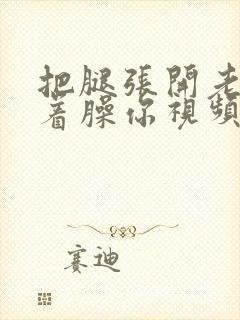 把腿張開老
着臊你視頻
賽迪